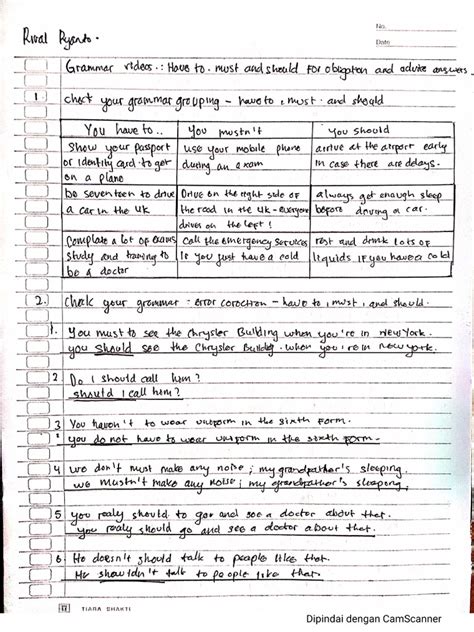 No.
Date
Rival Ryanto.
Grammar videos : Have to, must and should for obligation and advice answers
1. check your grammar grouping - have to, must, and should
You have to..
You mustn't
You should
Show your passport
or identity card to get
on a plane
use your mobile phone
during an exam
arrive at the airport early
in case there are delays.
be seventeen to drive
a car in the UK
Drive on the right side of
the road in the UK - everyone
drives on the left!
always get enough sleep
before driving a car.
Complate a lot of exams
study and training to
be a doctor
Call the emergency services
if you just have a cold
rest and drink lots of
liquids if you have a cold
2. Check your grammar = error corection - have to, must, and should.
1. You must to see the Chrysler Building when you're in New York.
you should see the Chrysler Building when you're in new york.
2 Do I should call him?
should I call him?
3 You haven't to wear uniform in the sixth form.
you do not have to wear uniform in the sixth form.
4 we don't must make any noise; my grandfather's sleeping.
we mustn't make any noise; my grandfather's sleeping;
5 you realy should to go and see a doctor about that.
you realy should go and see a doctor about that.
6. He doesn't should talk to people like that.
He shouldn't talk to people like that.
TIARA SHAKTI
Dipindai dengan CamScanner